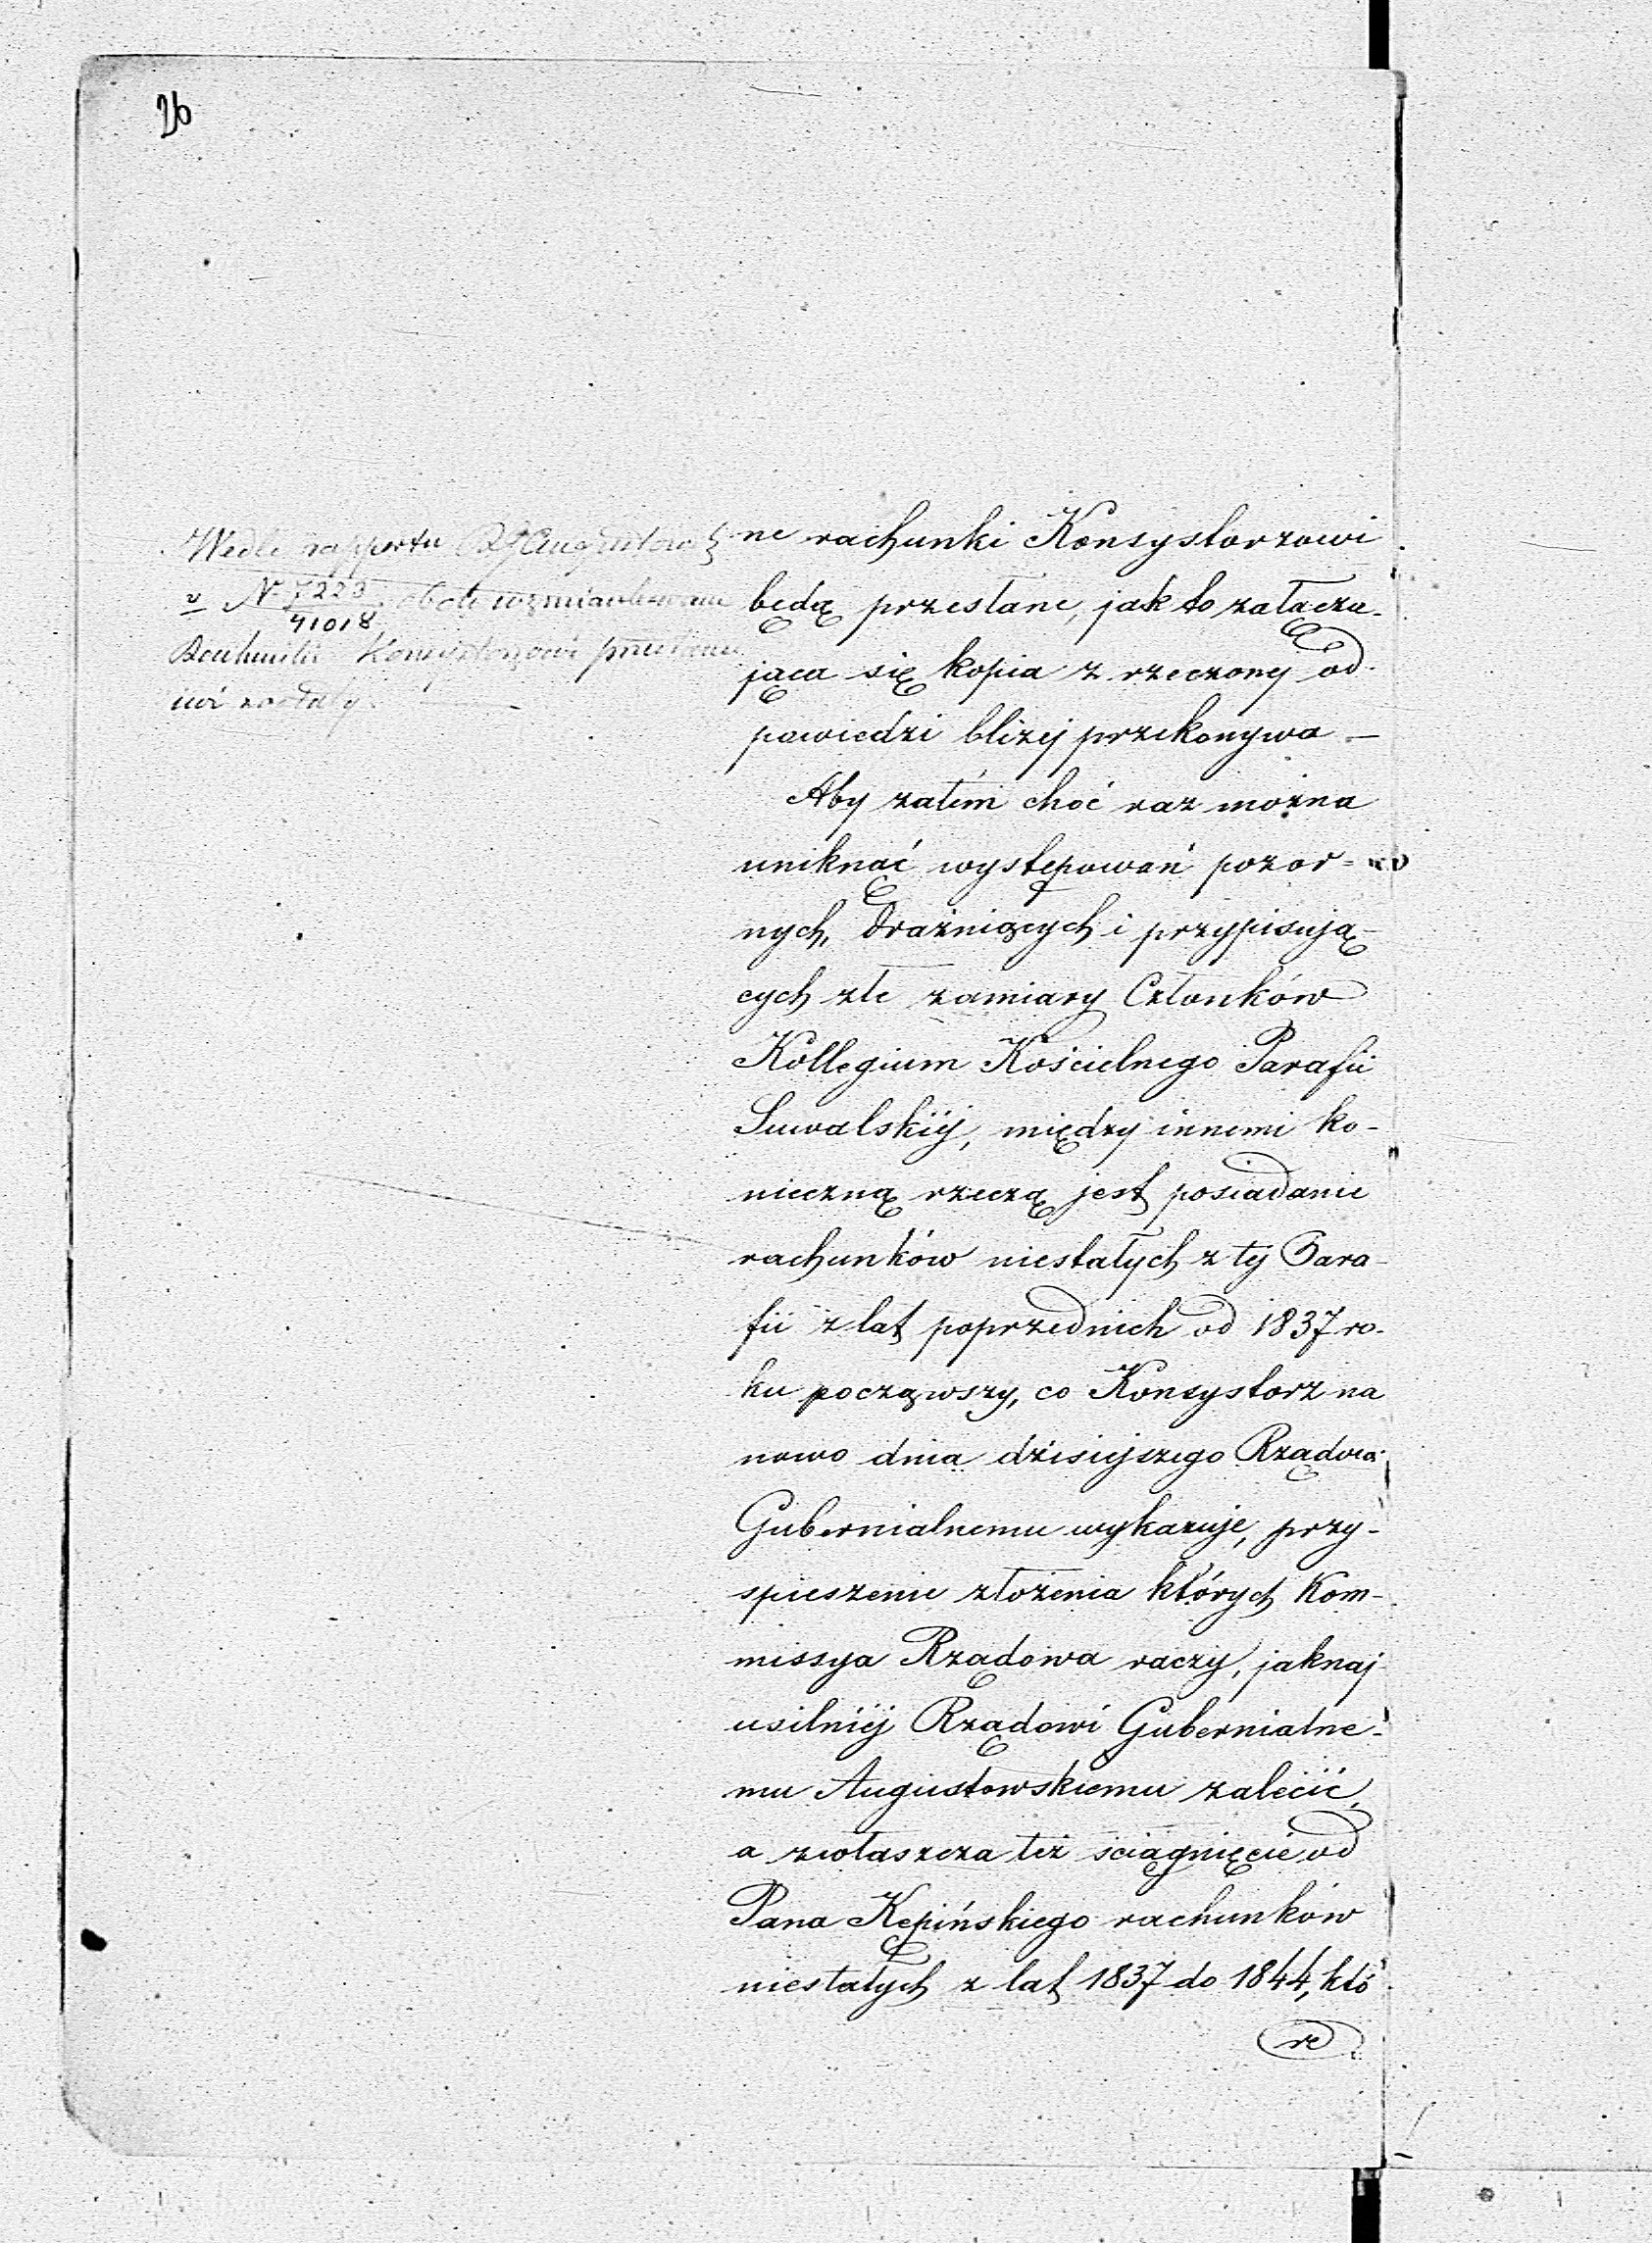 26
Wedle rapportu RG Augustows
N. 7223
41018
obok wzmiankowane
Rachunki Konsystorzowi przesłane
już zostały.
ne rachunki Konsystorzowi
będą przesłane, jak to załącza-
jąca się kopia z rzeczony od-
powiedzi bliżej przekonywa —
Aby zatém choć raz można
uniknąć występowań pozor=
nych, drażniących i przypisują-
cych złe zamiary Członków
Kollegium Kościelnego Parafii
Suwalskiéj, między innemi ko-
nieczną rzeczą jest posiadanie
rachunków niestałych z téj Para-
fii z lat poprzednich od 1837 ro-
ku począwszy, co Konsystorz na
nowo dnia dzisiejszego Rządowi
Gubernialnemu wykazuje, przy-
spieszenie złożenia których Kom-
missya Rządowa raczy, jaknaj-
usilniéj Rządowi Gubernialne-
mu Augustowskiemu zalécić,
a zwłaszcza też ściągnięcie od
Pana Kępińskiego rachunków
niestałych z lat 1837 do 1844, któ
re